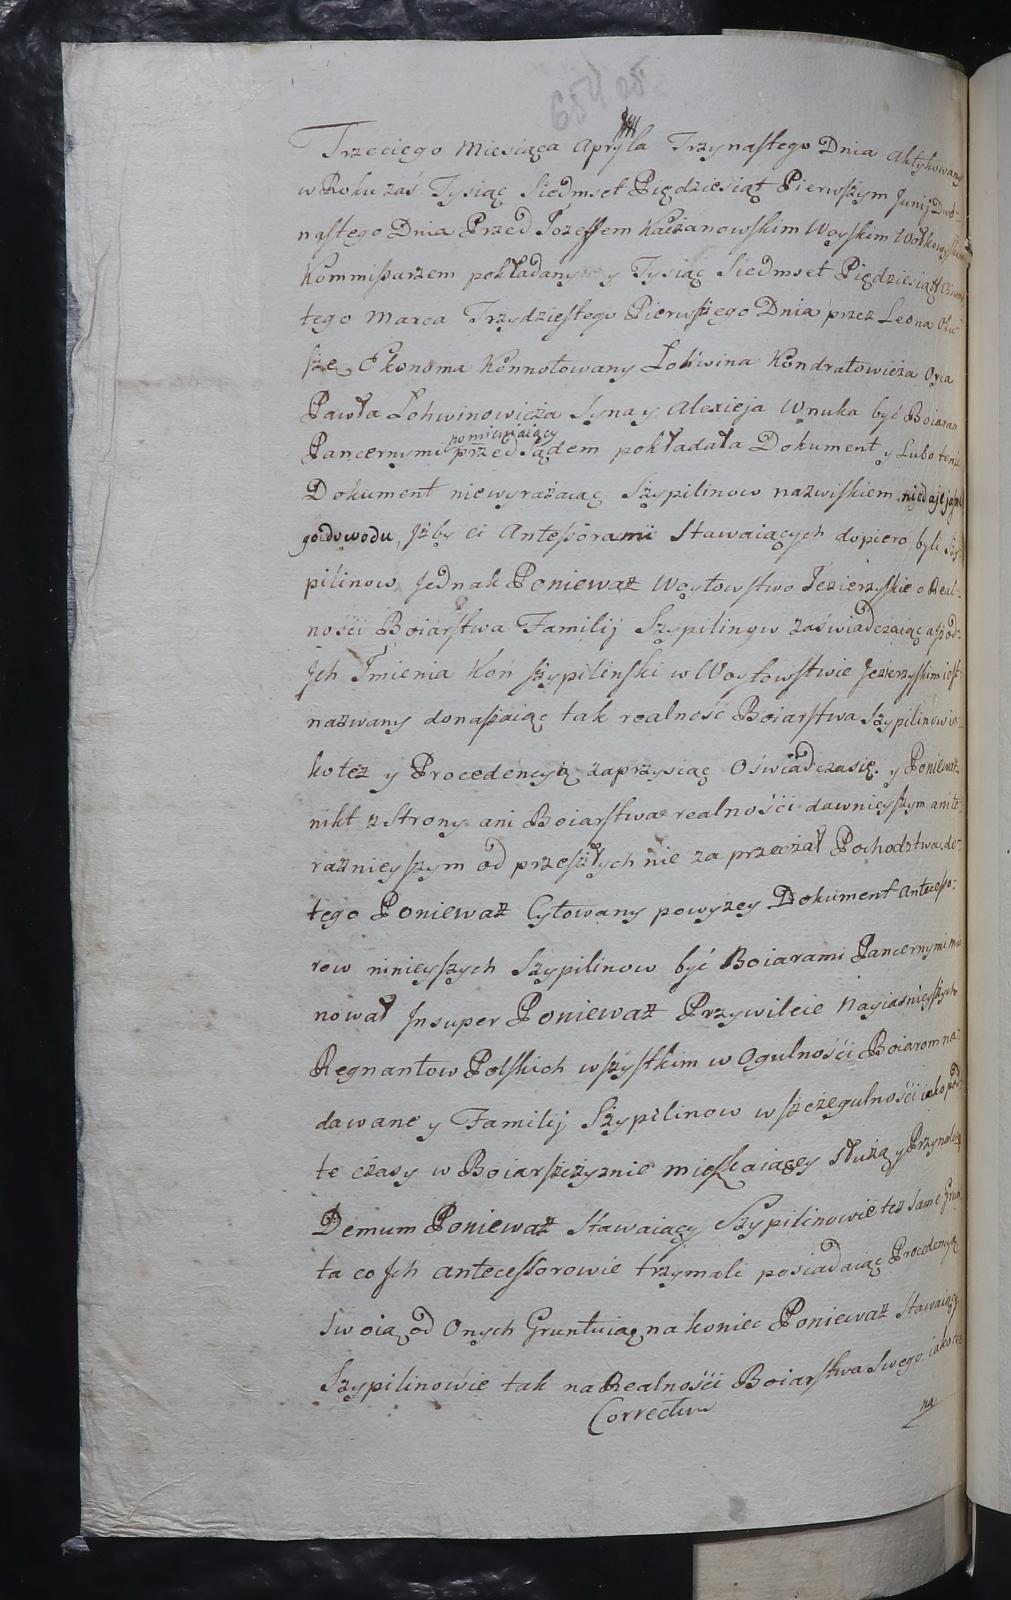 Trzeciego Miesiąca Apryla Trzynastego Dnia Aktykowany
w Roku zaś Tysiąc Siedmset Pięgdziesiąt Pierwszym Junij Dwó-
nastego Dnia Przed Józeffem Kaczanowskim Woyskim Wołkowyskim
Kommissarzem pokładany y Tysiąc Siedmset Pięgdziesiąt
tego Marca Trzydziestego Pierwszego Dnia przez Leona
szę Ekonoma Konnotowany Łohwina Kondratowicza Oyca
Pawła Łohwinowicza Syna y Alexieja Wnuka być Boiaran
pomieniaiący
Pancernymi przed Sądem pokładała Dokument y Lubo tenże
Dokument niewyrażaiąc Szypilinow nazwiskiem niedaje
go dowodu, Jżby ci Antessorami Stawaiących dopiero byli Szy-
pilinow, Jednak Poniewaz Woytowstwo Jezierzyskie o Real-
ności Boiarstwa Familij Szypilinow zaświadczaiąc a pod
Jch Jmienia Koń Szypilinski w Woytowstwie Jezierzyskim iest
nazwany donaszaiąc tak realność Boiarstwa Szypilinow ia-
kotez y Procedencyą zaprzysiąc Oświadcza się. y Poniewaz
nikt z Strony ani Boiarstwa realności dawnieyszym ani te-
raznieyszym od przeszłych nie zaprzeczał Pochodstwa, do-
tego Poniewaz Cytowany powyzey Dokument Antecesso-
row ninieyszych Szypilinow być Boiarami Pancernymi mia-
nował Jnsuper Poniewaz Przywileie Nayiasnieyszych
Regnantow Polskich wszystkim w Ogulności Boiarom na-
dawane y Familij Szypilinow w szczegulności iako pod
te czasy w Boiarszczyznie mieszkaiącey służą y Przynależą
Demum Poniewaz Stawaiący Szypilinowie tez same Grun
ta co Jch Antecessorowie trzymali posiadaiąc Procedencyą
Swoią od Onych Gruntuią nakoniec Poniewaz Stawaiący
Szypilinowie tak na Realności Boiarstwa Swego iako tez
Correctum
na